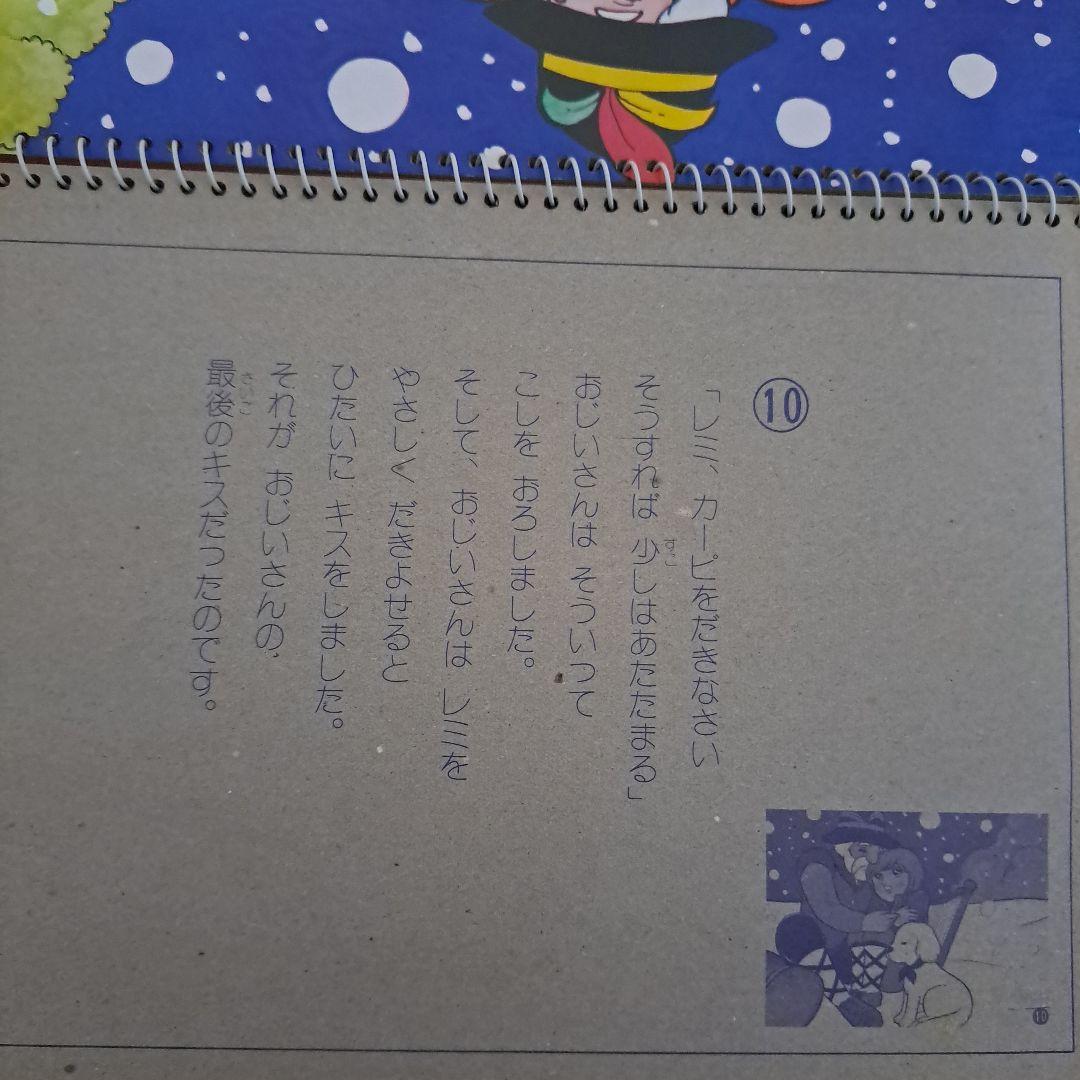 ⑩
「レミ、カーピをだきなさい
そうすれば 少しはあたたまる」
すこ
おじいさんは そういって
こしを おろしました。
そして、おじいさんは レミを
やさしく だきよせると
ひたいに キスをしました。
それが おじいさんの、
最後のキスだったのです。
さいご
10